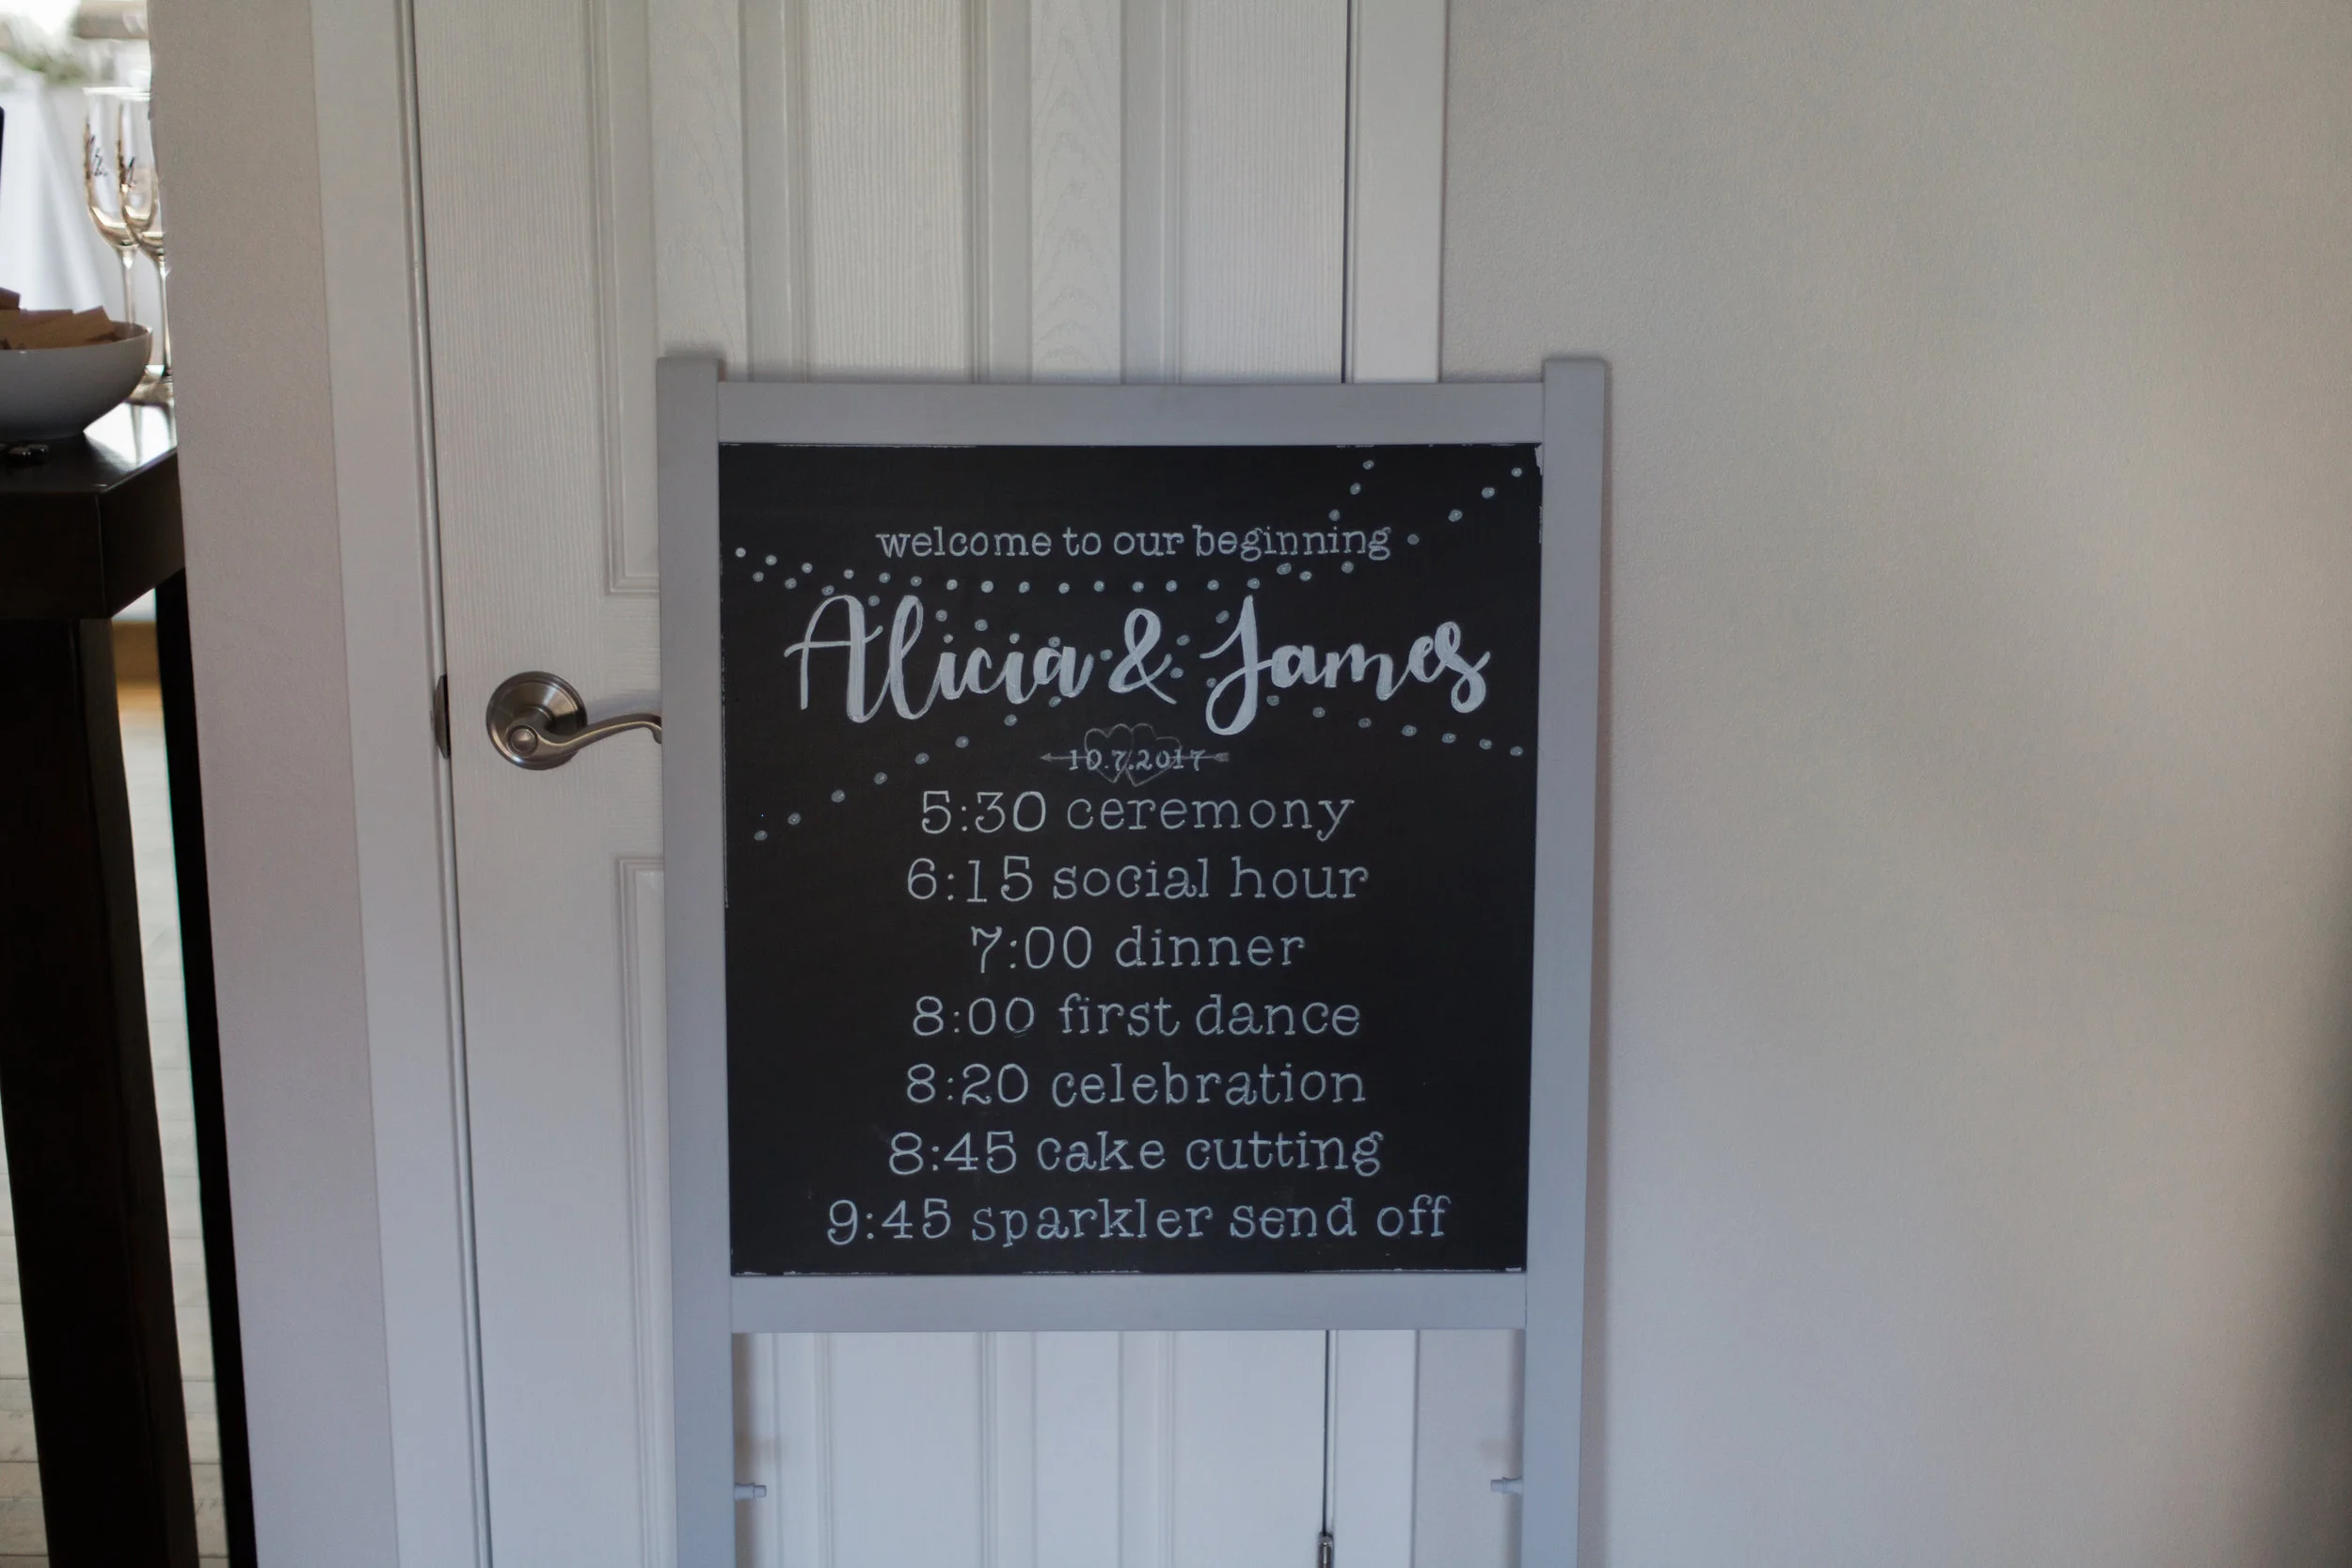 welcome to our beginning
Alicia & James
10.7.2017
5:30 ceremony
6:15 social hour
7:00 dinner
8:00 first dance
8:20 celebration
8:45 cake cutting
9:45 sparkler send off